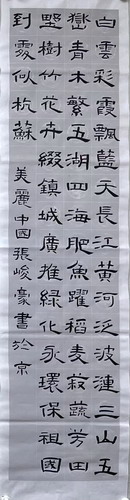 白雲彩霞飄藍天長江黃河泛波漣三山五
嶽青木繁五湖四海肥魚躍稻麦菽蔬芳田
野樹竹花卉綴鎮城廣推綠化永環保祖國
到處似杭蘇
美麗中國張峻豪書於京